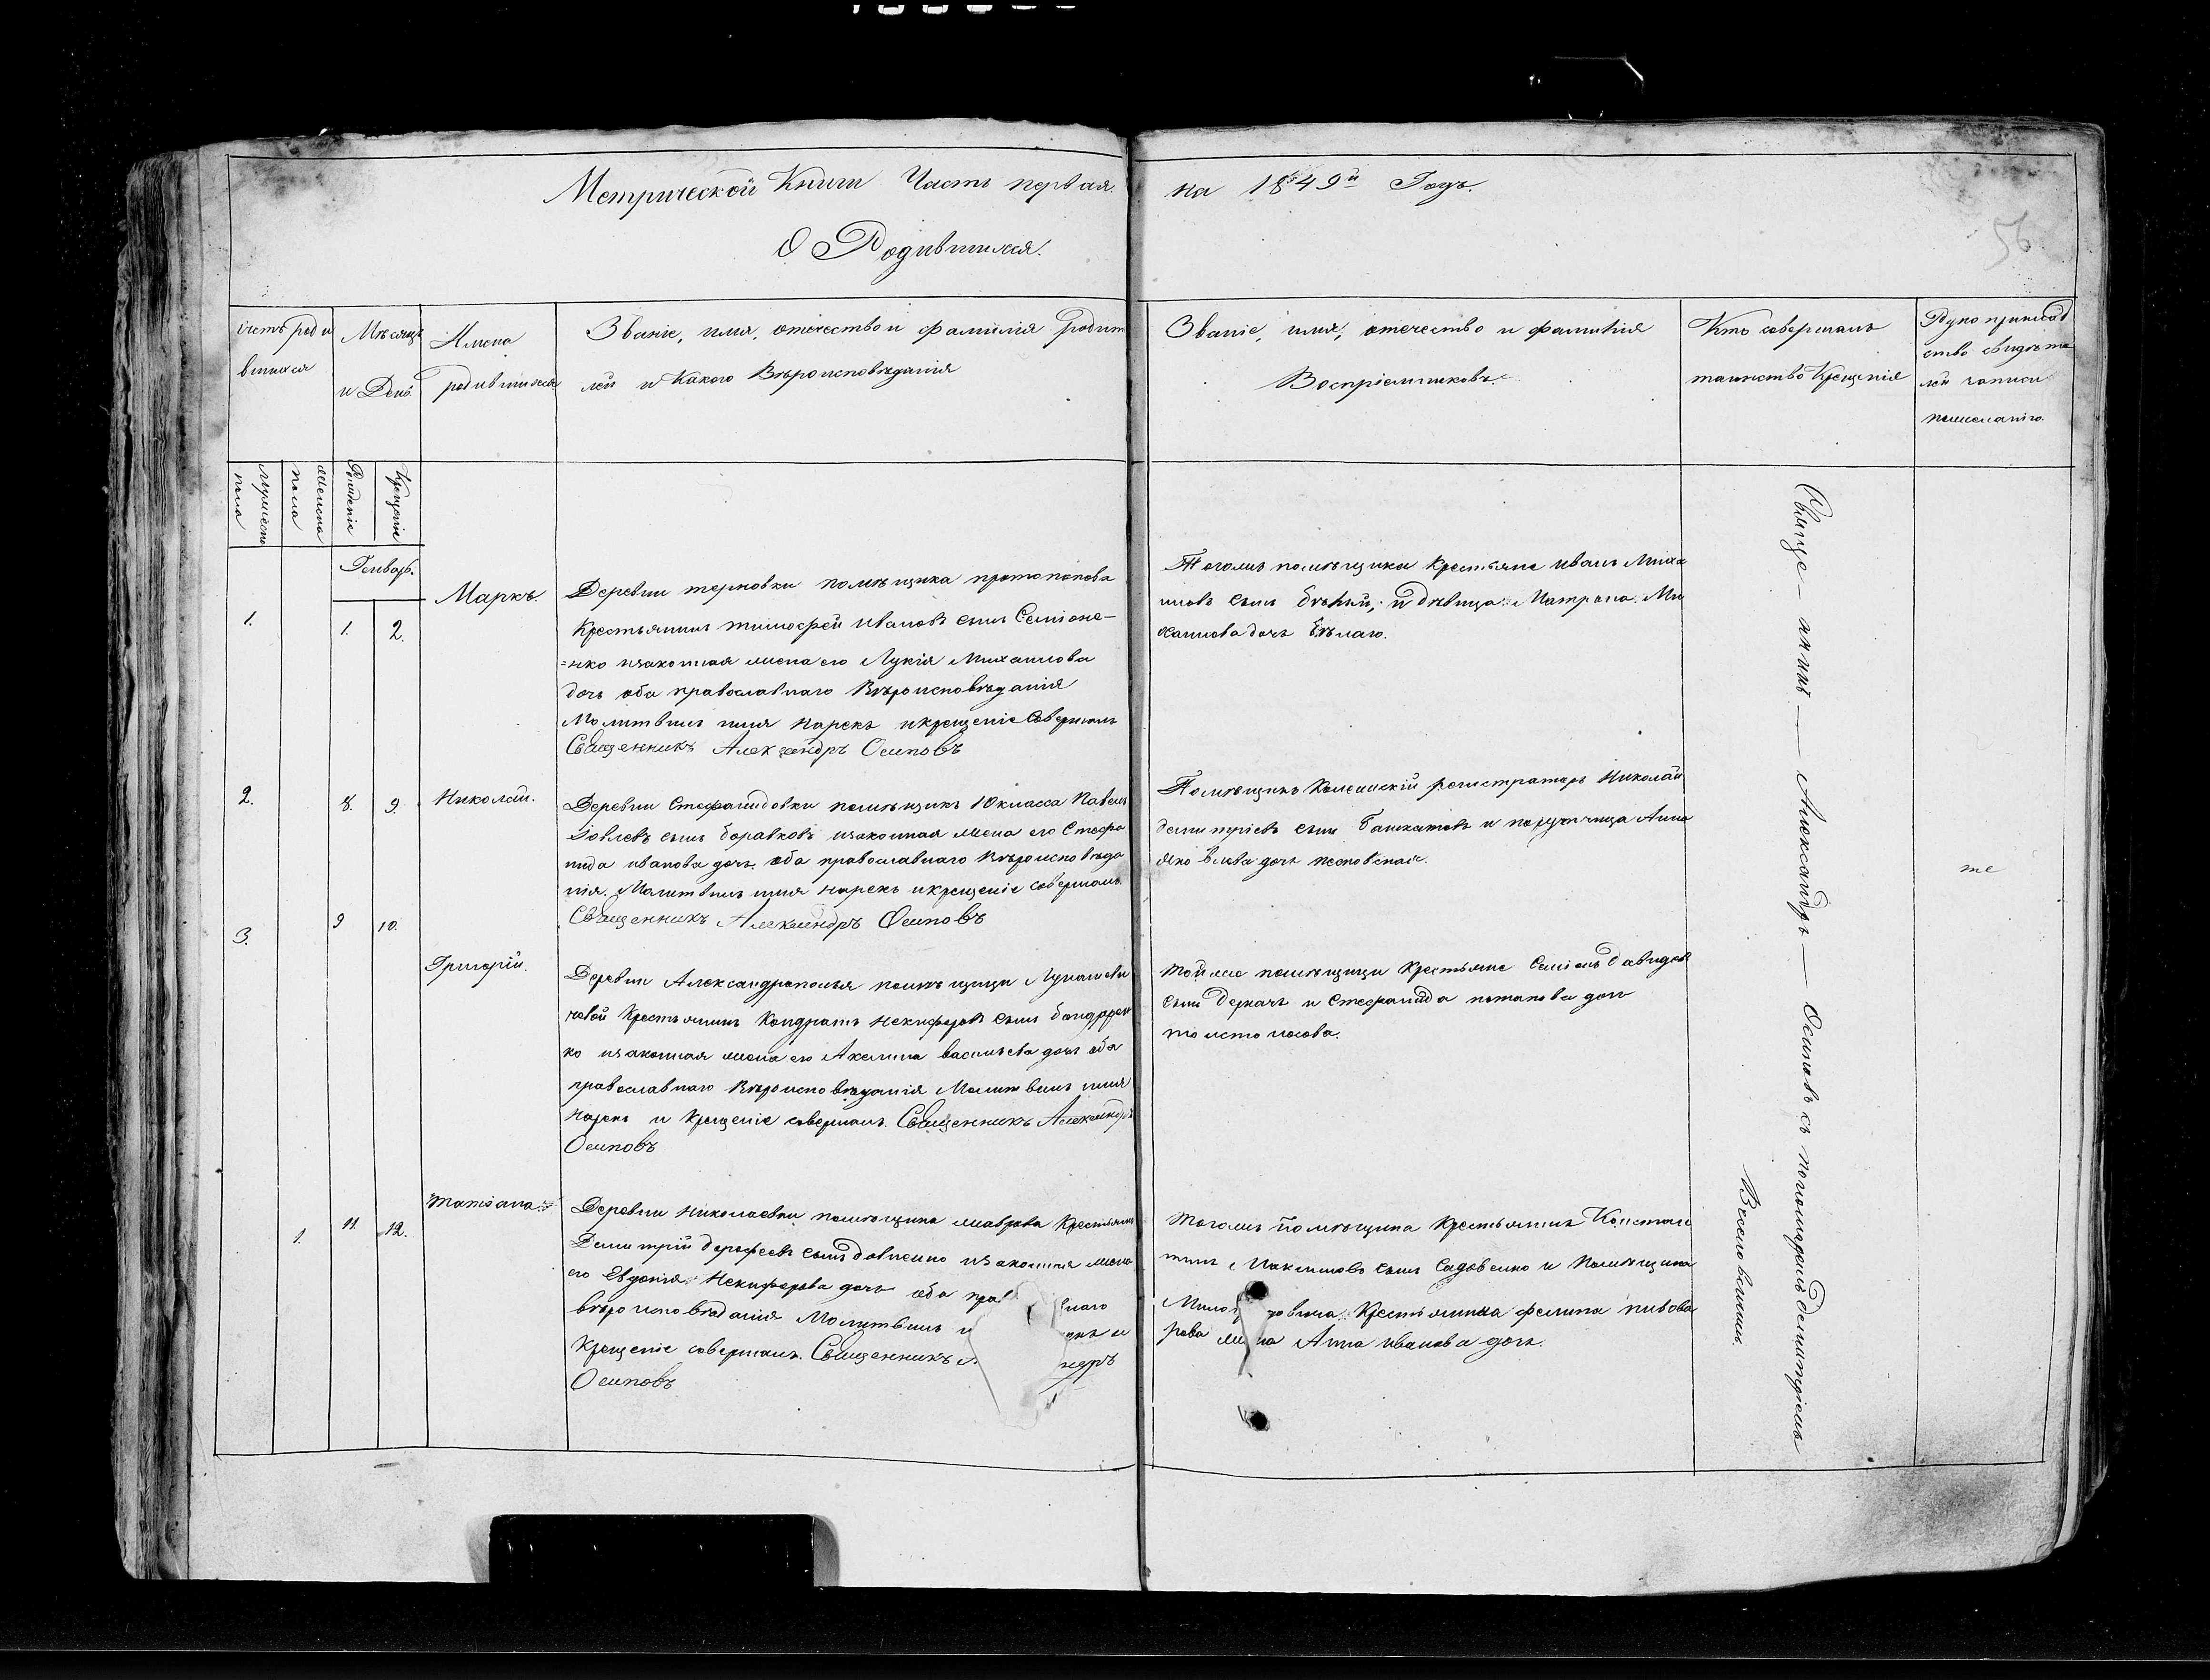 Метрической Книги Часть первая.
на 1849й Годъ.
56
О Родившихся.
Счетъ роди
вшихся
Мѣсяцъ
и День.
Имена
родившихся
Званіе, имя, отечество и фамилія родит
лей и Какого Вѣроисповѣданія
Званіе, имя, отечество и фамилія
Воспріемниковъ.
Кто совершалъ
таинство Крещенія
Рукоприклад
ство свидѣте
лей записи
по желанію.
мужеска
пола
женска
пола
Рожденіе
Крещеніе
Генварь.
1.
1.
2.
Маркъ.
Деревни терновки помѣщика протопопова
Крестьянинъ тимофей Ивановъ сынъ Семіоне-
=нко изаконная жена его Лукія Михаилова
дочь оба православнаго Вѣроисповѣданія
Молитвилъ имя Нарекъ икрещеніе Совершалъ
Священникъ Александръ Осиповъ
Тогожъ помѣщика Крестьяне иванъ Миха
иловъ сынъ бѣлый, и дѣвица Матрона Ми
хаилова дочь бѣлаго.
2.
8.
9.
Николай.
Деревни Стефанидовки помѣщикъ 10 класса Павелъ
Іовлевъ сынъ изаконная жена его Стефа
нида иванова дочь оба православнаго Вѣроисповѣда
нія. Молитвилъ имя нарекъ икрещеніе совершалъ.
Священникъ Александръ Осиповъ
Помѣщикъ Колежскій регистраторъ Николай
димитріевъ сынъ и поручица Анна
дочь
3.
9
10.
Григорій.
Деревни Александрополья помѣщици
Крестьянинъ Кондратъ Некифоровъ сынъ бондарен
ко изаконная жена его Акилина васильева дочь оба
православнаго Вѣроисповѣданія Молитвилъ имя
Нарекъ и Крещеніе совершалъ. Священникъ Александръ
Осиповъ
тойжъ помѣщици Крестьяне Семіонъ давидовъ
сынъ деркачъ и Стефанида потапова дочь
толстоносова.
1.
11.
12.
татіана.
Деревни Николаевки помѣщика Крестьянинъ
Димитрій дорофеевъ сынъ изаконная жена
его Евдокія Некифорова дочь оба прав наго
вѣроисповѣданія Молитвилъ и екъ и
Крещеніе совершалъ. Священникъ А ндръ
Осиповъ
тогожъ помѣщика Крестьянинъ Констан
тинъ Максимовъ сынъ Садовенко и Помѣщика
Крестьянина филипа пивова
рова жена Анна иванова дочь.
Священникъ — Александръ — Осиповъ съ пономаремъ Димитріемъ
же